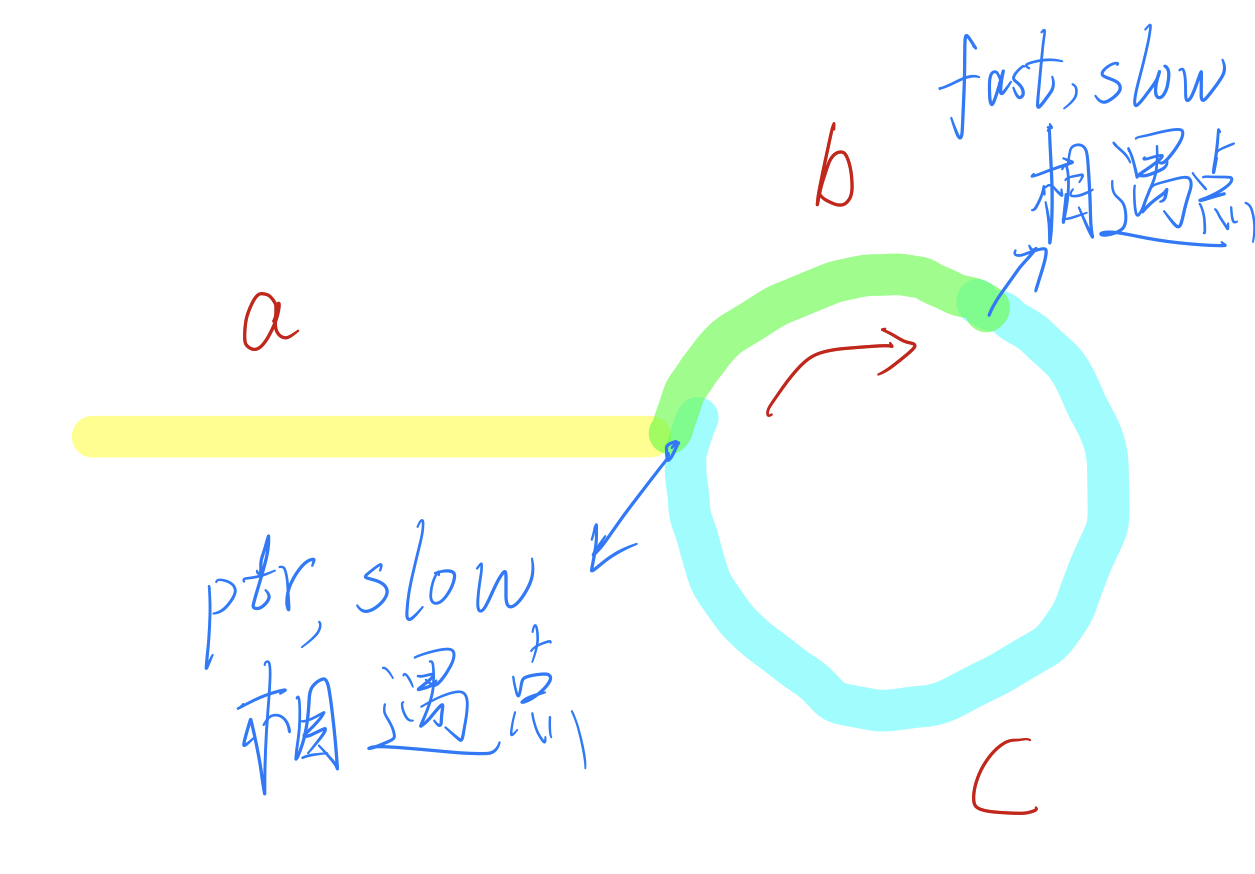 fast, slow
相遇点
b
a
ptr, slow
相遇点
c